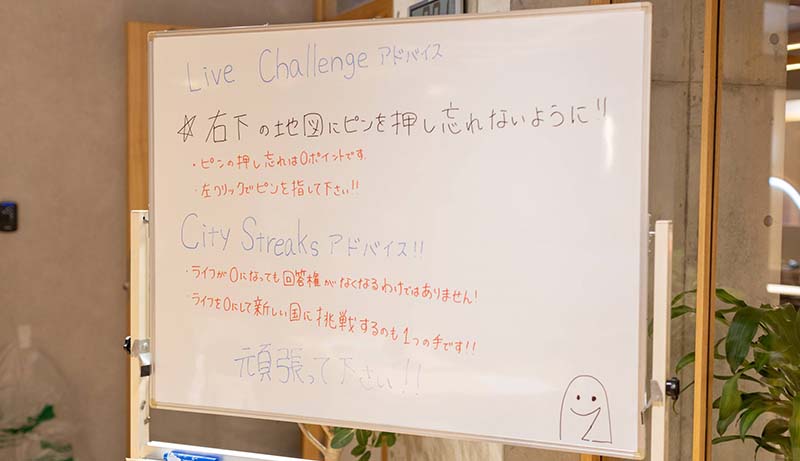 Live Challenge アドバイス
☆右下の地図にピンを押し忘れないように!!
・ピンの押し忘れは0ポイントです.
・左クリックでピンを指して下さい!!
City Streaks アドバイス!!
・ライフが0になっても回答権がなくなるわけではありません!
・ライフを0にして新しい国に挑戦するのも1つの手です!!
頑張って下さい!!